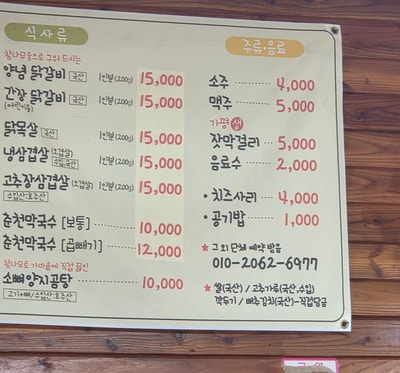 식사류
참나무숯으로 구워 드시는
양념 닭갈비 국산 1인분(200g) 15,000
간장 닭갈비 국산 1인분(200g) 15,000
(어린이용)
닭목살 국산 1인분(200g) 15,000
냉삼겹살 (오겹살) 수입/국산 1인분(200g) 15,000
고추장삼겹살 (오겹살) 1인분(200g) 15,000
수입산:호주산
춘천막국수 [보통] 10,000
춘천막국수 [곱빼기] 12,000
참나무로 가마솥에 직접 끓인
소뼈양지곰탕 10,000
고기+뼈/수입산:호주산
주류·음료
소주 4,000
맥주 5,000
가평 생
잣막걸리 5,000
음료수 2,000
·치즈사리 4,000
·공기밥 1,000
★ 그 외 단체 예약 받음
010-2062-6977
★ 쌀(국산) / 고추가루(국산,수입)
깍두기 / 배추김치(국산)-직접담금